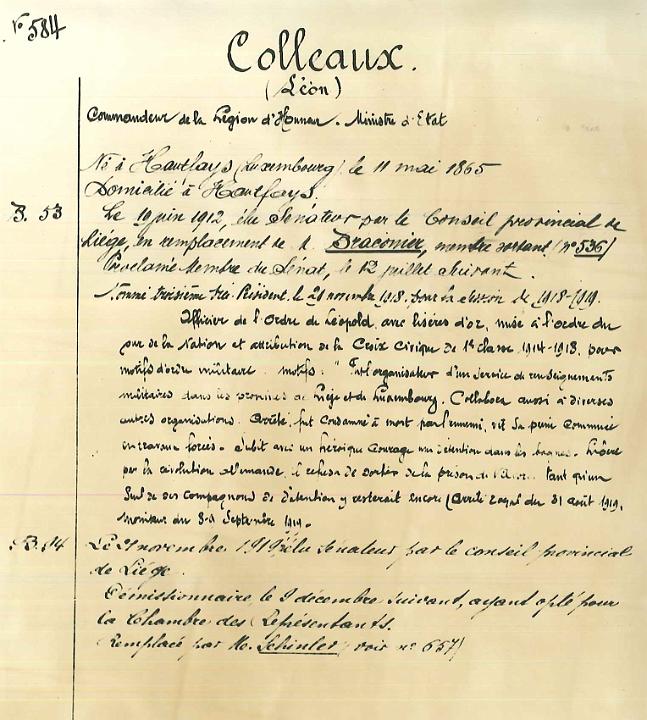 N° 584
Colleaux.
(Léon)
Commandeur de la Légion d'Honneur. Ministre d'Etat
Né à Hautfays (Luxembourg) le 11 mai 1865
Domicilié à Hautfays
B. 53
Le 19 juin 1912, élu Sénateur par le Conseil provincial de
Liége, en remplacement de M. Braconier, membre sortant (n° 536)
Proclamé Membre du Sénat, le 12 juillet suivant.
Nommé troisième Vice-Président, le 21 novembre 1918, pour la session de 1918-1919.
Officier de l'Ordre de Léopold, avec liséres d'or, mise à l'ordre du
jour de la Nation et attribution de la Croix Civique de 1e classe, 1914-1918, pour
motifs d'ordre militaire. motifs: " Fut l'organisateur d'un service de renseignements
militaires dans les provinces de Liége et du Luxembourg. Collabora aussi à diverses
autres organisations. Arrêté, fut condamné à mort par l'ennemi, vit sa peine commuée
en travaux forcés. Subit avec un héroïque courage sa détention dans les bagnes. Libéré
par la révolution allemande, il refusa de sortir de la prison de tant qu'un
seul de ses compagnons de détention y resterait encore (Arrêté royal du 31 août 1919,
Moniteur du 3-4 Septembre 1919.
B. 14
Le 27 novembre 1919 élu Sénateur par le conseil provincial
de Liége.
Démissionnaire le 9 décembre suivant, ayant opté pour
la Chambre des Représentants.
(Remplacé par M. Schinler (voir n° 657)